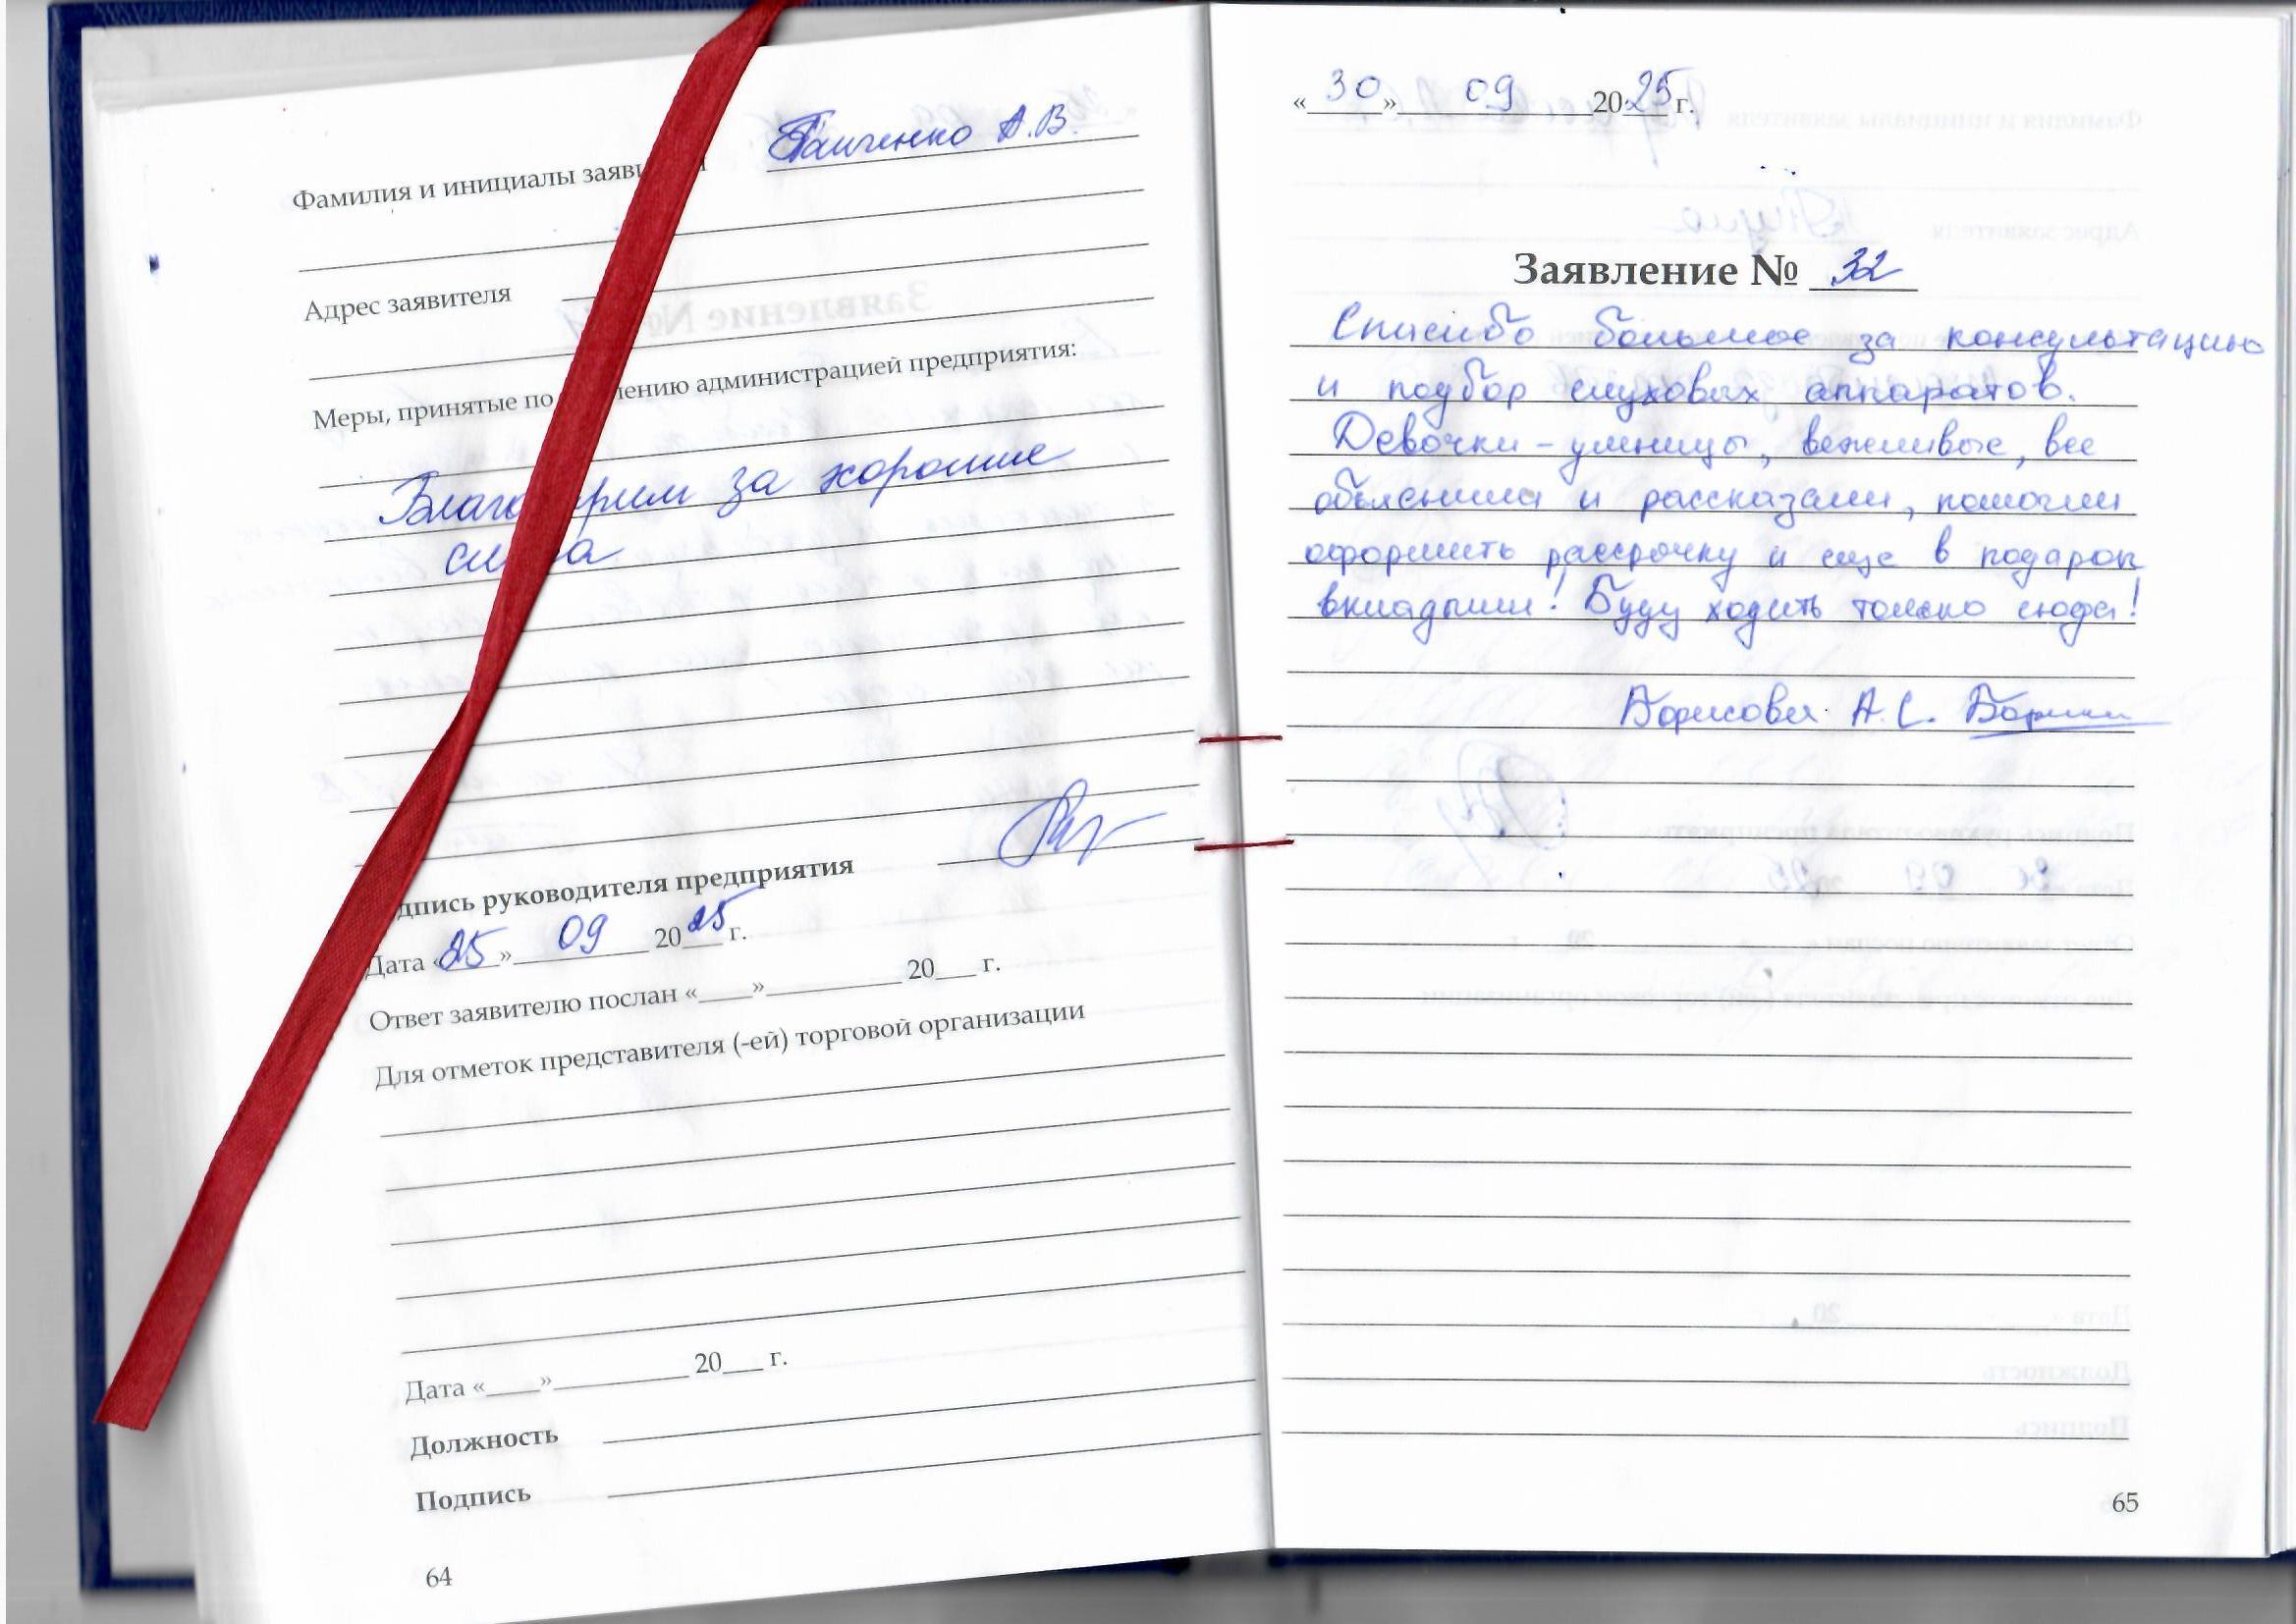 Фамилия и инициалы заяви Панченко А.В.
Адрес заявителя
Меры, принятые по лению администрацией предприятия:
Благо рим за хорошие
сл ва
дпись руководителя предприятия
Дата «25» 09 2025 г.
Ответ заявителю послан «____»__________ 20___ г.
Для отметок представителя (-ей) торговой организации
Дата «____»__________ 20___ г.
Должность
Подпись
64
«30» 09 2025 г.
Заявление № 32
Спасибо большое за консультацию
и подбор слуховых аппаратов.
Девочки - умницы, вежливые, все
объяснили и рассказали, помогли
оформить рассрочку и еще в подарок
вкладыши! Буду ходить только сюда!
Борисова А.С.
65